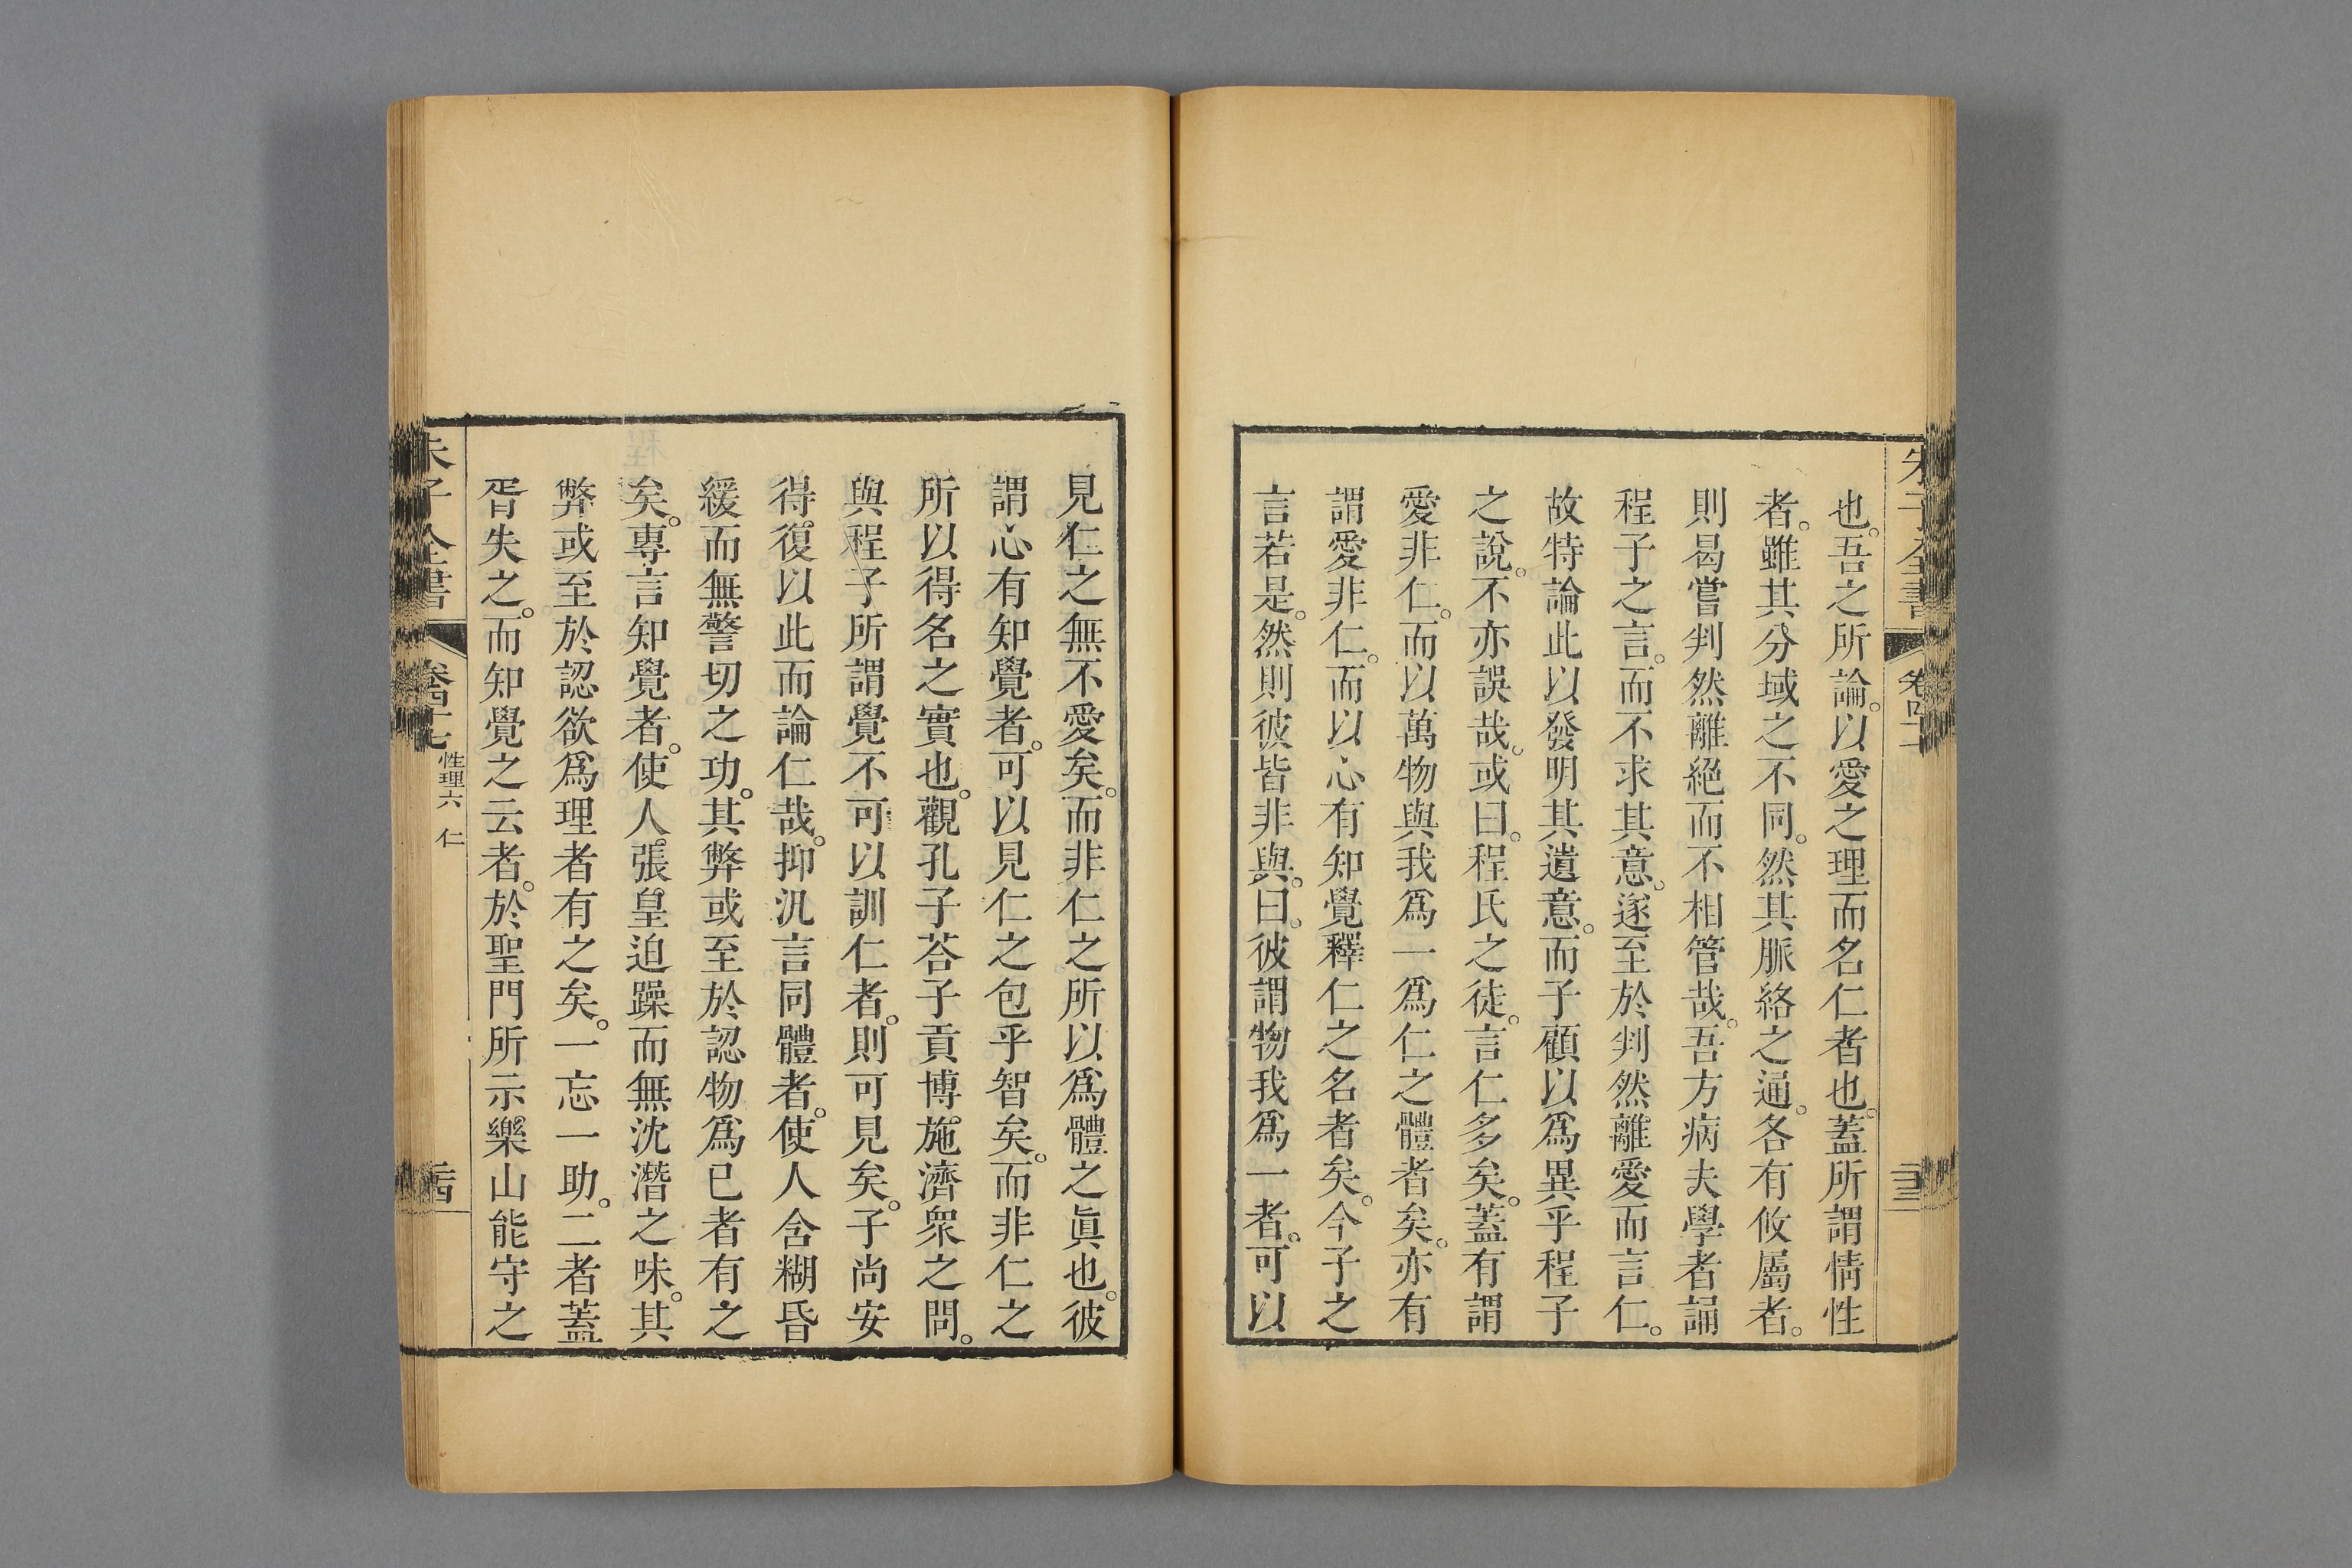 也。吾之所論。以愛之理而名仁者也。蓋所謂情性
者。雖其分域之不同。然其脈絡之通。各有攸屬者。
則曷嘗判然離絕而不相管哉。吾方病夫學者誦
程子之言。而不求其意。遂至於判然離愛而言仁。
故特論此以發明其遺意。而子顧以爲異乎程子
之說。不亦誤哉。或曰。程氏之徒。言仁多矣。蓋有謂
愛非仁。而以萬物與我爲一爲仁之體者矣。亦有
謂愛非仁。而以心有知覺釋仁之名者矣。今子之
言若是。然則彼皆非與。曰。彼謂物我爲一者。可以
見仁之無不愛矣。而非仁之所以爲體之眞也。彼
謂心有知覺者。可以見仁之包乎智矣。而非仁之
所以得名之實也。觀孔子荅子貢博施濟衆之問。
與程子所謂覺不可以訓仁者。則可見矣。子尚安
得復以此而論仁哉。抑汎言同體者。使人含糊昏
緩而無警切之功。其弊或至於認物爲已者有之
矣。專言知覺者。使人張皇迫躁而無沈潛之味。其
弊或至於認欲爲理者有之矣。一忘一助。二者蓋
胥失之。而知覺之云者。於聖門所示樂山能守之
朱子全書
卷四十七
性理六 仁